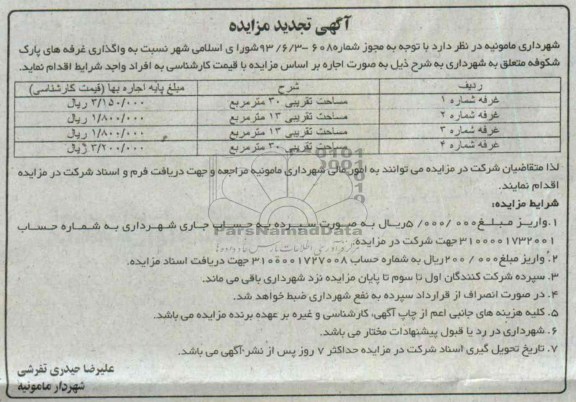 آگهی تجدید مزایده
شهرداری مامونیه در نظر دارد با توجه به مجوز شماره ۶۰۸-۹۳/۶/۳ شورای اسلامی شهر نسبت به واگذاری غرفه های پارک
شکوفه متعلق به شهرداری به شرح ذیل به صورت اجاره بر اساس مزایده با قیمت کارشناسی به افراد واجد شرایط اقدام نماید.
ردیف شرح مبلغ پایه اجاره بها (قیمت کارشناسی)
غرفه شماره ۱ مساحت تقریبی ۳۰ مترمربع ۳/۱۵۰/۰۰۰ ریال
غرفه شماره ۲ مساحت تقریبی ۱۳ مترمربع ۱/۸۰۰/۰۰۰ ریال
غرفه شماره ۳ مساحت تقریبی ۱۳ مترمربع ۱/۸۰۰/۰۰۰ ریال
غرفه شماره ۴ مساحت تقریبی ۳۰ مترمربع ۳/۲۰۰/۰۰۰ ریال
لذا متقاضیان شرکت در مزایده می توانند به امور مالی شهرداری مامونیه مراجعه و جهت دریافت فرم و اسناد شرکت در مزایده
اقدام نمایند.
شرایط مزایده:
۱. واریز مبلغ ۵/۰۰۰/۰۰۰ ریال به صورت سپرده به حساب جاری شهرداری به شماره حساب
۳۱۰۰۰۰۱۷۳۲۰۰۱ جهت شرکت در مزایده.
ParsNamadData
۲. واریز مبلغ ۲۰۰/۰۰۰ ریال به شماره حساب ۳۱۰۵۰۰۱۷۲۷۰۰۸ جهت دریافت اسناد مزایده.
۳. سپرده شرکت کنندگان اول تا سوم تا پایان مزایده نزد شهرداری باقی می ماند.
۴. در صورت انصراف از قرارداد سپرده به نفع شهرداری ضبط خواهد شد.
۵. کلیه هزینه های جانبی اعم از چاپ آگهی، کارشناسی و غیره بر عهده برنده مزایده می باشد.
۶. شهرداری در رد یا قبول پیشنهادات مختار می باشد.
۷. تاریخ تحویل گیری اسناد شرکت در مزایده حداکثر ۷ روز پس از نشر آگهی می باشد.
علیرضا حیدری تفرشی
شهردار مامونیه